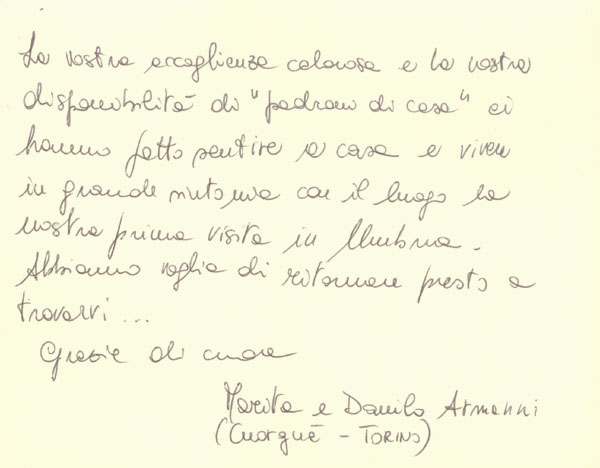 La vostra accoglienza calorosa e la vostra
disponibilità di "padroni di casa" ci
hanno fatto sentire a casa e vivere
in grande sintonia con il luogo la
nostra prima visita in Umbria.
Abbiamo voglia di ritornare presto a
trovarvi ...
Grazie di cuore
Marita e Danilo Armanni
(Cuorgnè - TORINO)